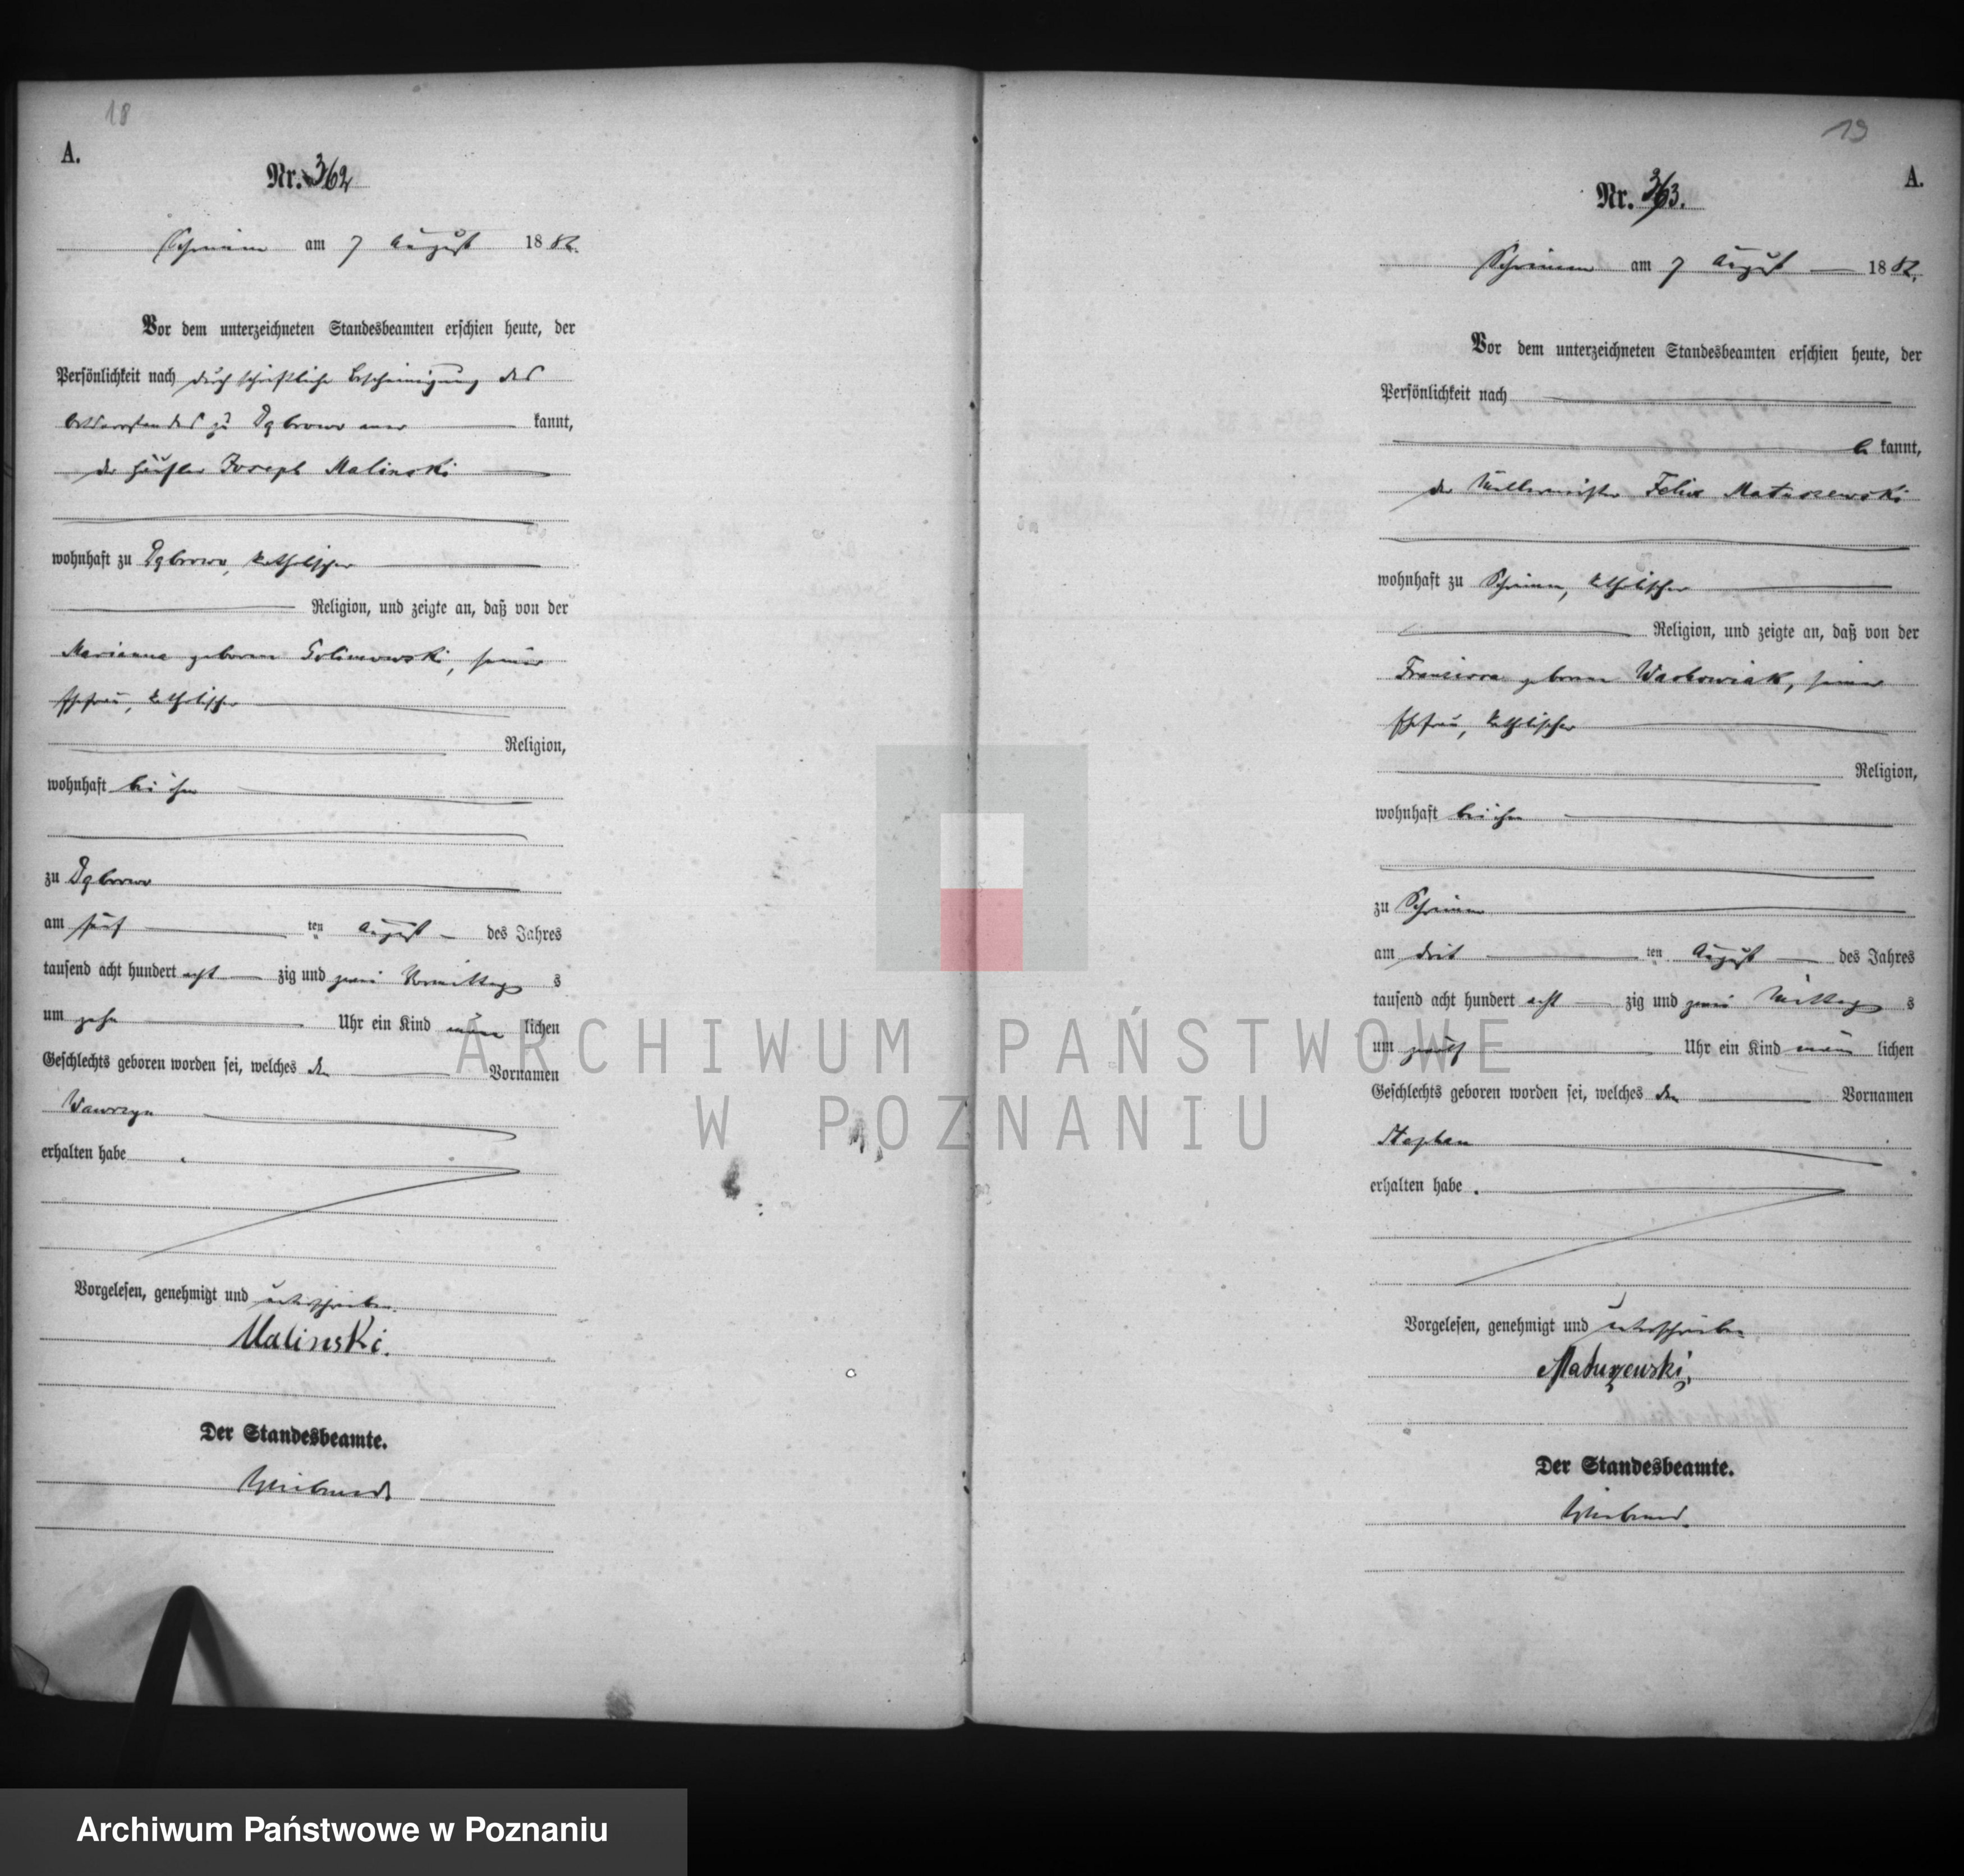 18
A.
Nr. 362
Schrimm am 7 August 1882.
Vor dem unterzeichneten Standesbeamten erschien heute, der
Persönlichkeit nach durch schriftliche Bescheinigung des
Ortsvorstandes zu Dąbrowo aner kannt,
der Häusler Joseph Malinski
wohnhaft zu Dąbrowo, katholischer
Religion, und zeigte an, daß von der
Marianna geborenen Golinowski, seiner
Ehefrau, katholischer
Religion,
wohnhaft bei ihm
zu Dąbrowo
am fünf ten August des Jahres
tausend acht hundert acht zig und zwei Vormittag s
um zehn Uhr ein Kind männ lichen
Geschlechts geboren worden sei, welches den Vornamen
Wawrzyn
erhalten habe.
Vorgelesen, genehmigt und unterschrieben.
Malinski.
Der Standesbeamte.
19
A.
Nr. 363.
Schrimm am 7 August 1882.
Vor dem unterzeichneten Standesbeamten erschien heute, der
Persönlichkeit nach
be kannt,
der Müllermeister Felix Matuszewski
wohnhaft zu Schrimm, katholischer
Religion, und zeigte an, daß von der
Francisca geborenen Waskowiak, seiner
Ehefrau, katholischer
Religion,
wohnhaft bei ihm
zu Schrimm
am drit ten August des Jahres
tausend acht hundert acht zig und zwei Mittag s
um zwölf Uhr ein Kind männ lichen
Geschlechts geboren worden sei, welches den Vornamen
Stephan
erhalten habe.
Vorgelesen, genehmigt und unterschrieben
Matuszewski.
Der Standesbeamte.
ARCHIWUM PAŃSTWOWE
W POZNANIU
Archiwum Państwowe w Poznaniu